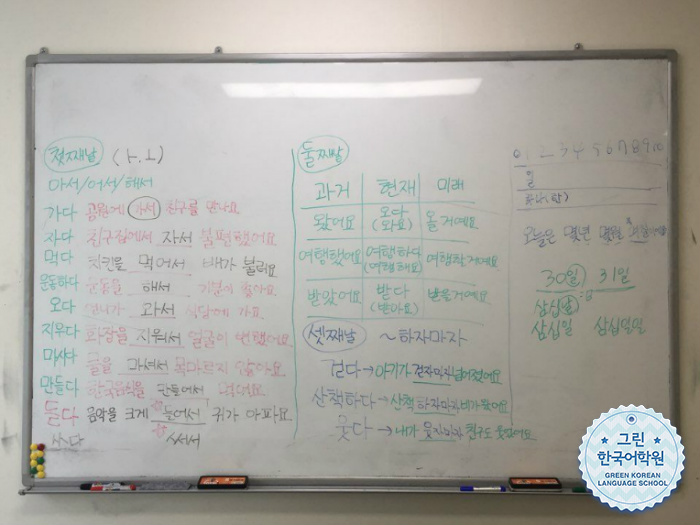 첫째날 (ㅏ.ㅗ)
아서/어서/해서
가다 공원에 가서 친구를 만나요
자다 친구집에서 자서 불편했어요
먹다 치킨을 먹어서 배가 불러요
운동하다 운동을 해서 기분이 좋아요
오다 언니가 와서 식당에 가요
지우다 화장을 지워서 얼굴이 변했어요
마시다 물을 마셔서 목마르지 않아요
만들다 한국음식을 만들어서 먹어요
듣다 음악을 크게 들어서 귀가 아파요
쓰다 써서
둘째날
과거 현재 미래
왔어요 오다 (와요) 올 거예요
여행했어요 여행하다 (여행해요) 여행할거예요
받았어요 받다 (받아요) 받을거예요
셋째날 ~하자마자
걷다→아기가 걷자마자 넘어졌어요
산책하다→산책하자마자 비가 왔어요
웃다→내가 웃자마자 친구도 웃었어요
0 1 2 3 4 5 6 7 8 9 10
일
오늘은 몇년 몇월
30일 31일
삼십날
삼십일 삼십일일
그린
한국어학원
GREEN KOREAN
LANGUAGE SCHOOL